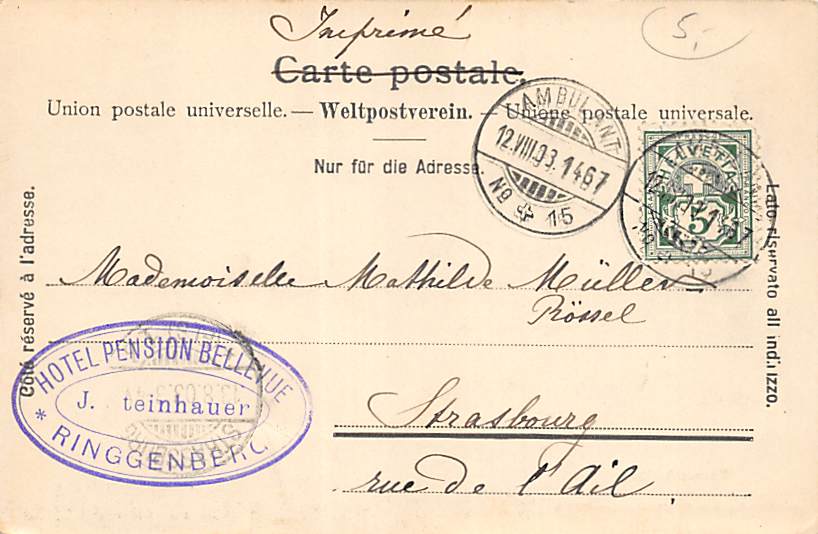 Imprimé
5,-
Carte postale.
Union postale universelle. — Weltpostverein. — Unione postale universale.
Nur für die Adresse.
AMBULANT
12.VIII.03. 1467
No 15
HELVETIA
5
Côté réservé à l'adresse.
Lato riservato all indirizzo.
Mademoiselle Mathilde Müller
Rössel
HOTEL PENSION BELLEVUE
J. teinhauer
* RINGGENBERG
Strasbourg
rue de l'Ail